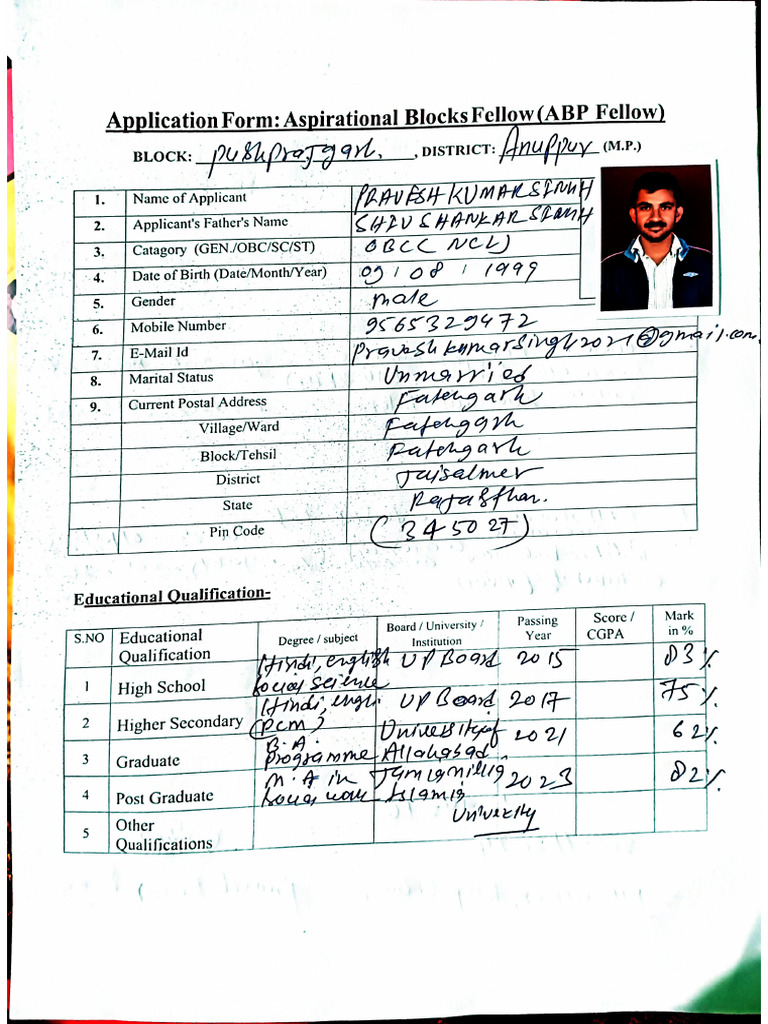 Application Form: Aspirational Blocks Fellow (ABP Fellow)
BLOCK: Pushprajgarh. , DISTRICT: Anuppur (M.P.)
1. Name of Applicant PRAVESH KUMAR SINGH
2. Applicant's Father's Name SHIV SHANKAR SINGH
3. Catagory (GEN./OBC/SC/ST) OBC( NCL)
4. Date of Birth (Date/Month/Year) 09 / 08 / 1999
5. Gender male
6. Mobile Number 9565329472
7. E-Mail Id Praveshkumarsingh2021@gmail.com
8. Marital Status Unmarried
9. Current Postal Address Fatehgarh
Village/Ward Fatehgarh
Block/Tehsil Fatehgarh
District Jaisalmer
State Rajasthan.
Pin Code (345027)
Educational Qualification-
S.NO Educational Qualification Degree / subject Board / University / Institution Passing Year Score / CGPA Mark in %
1 High School Hindi, english social science UP Board 2015 83%
2 Higher Secondary Hindi, engli (PCM) UP Board 2017 75%
3 Graduate B.A. programme University of Allahabad 2021 62%
4 Post Graduate M.A in social work Jamia millia Islamia University 2023 82%
5 Other Qualifications